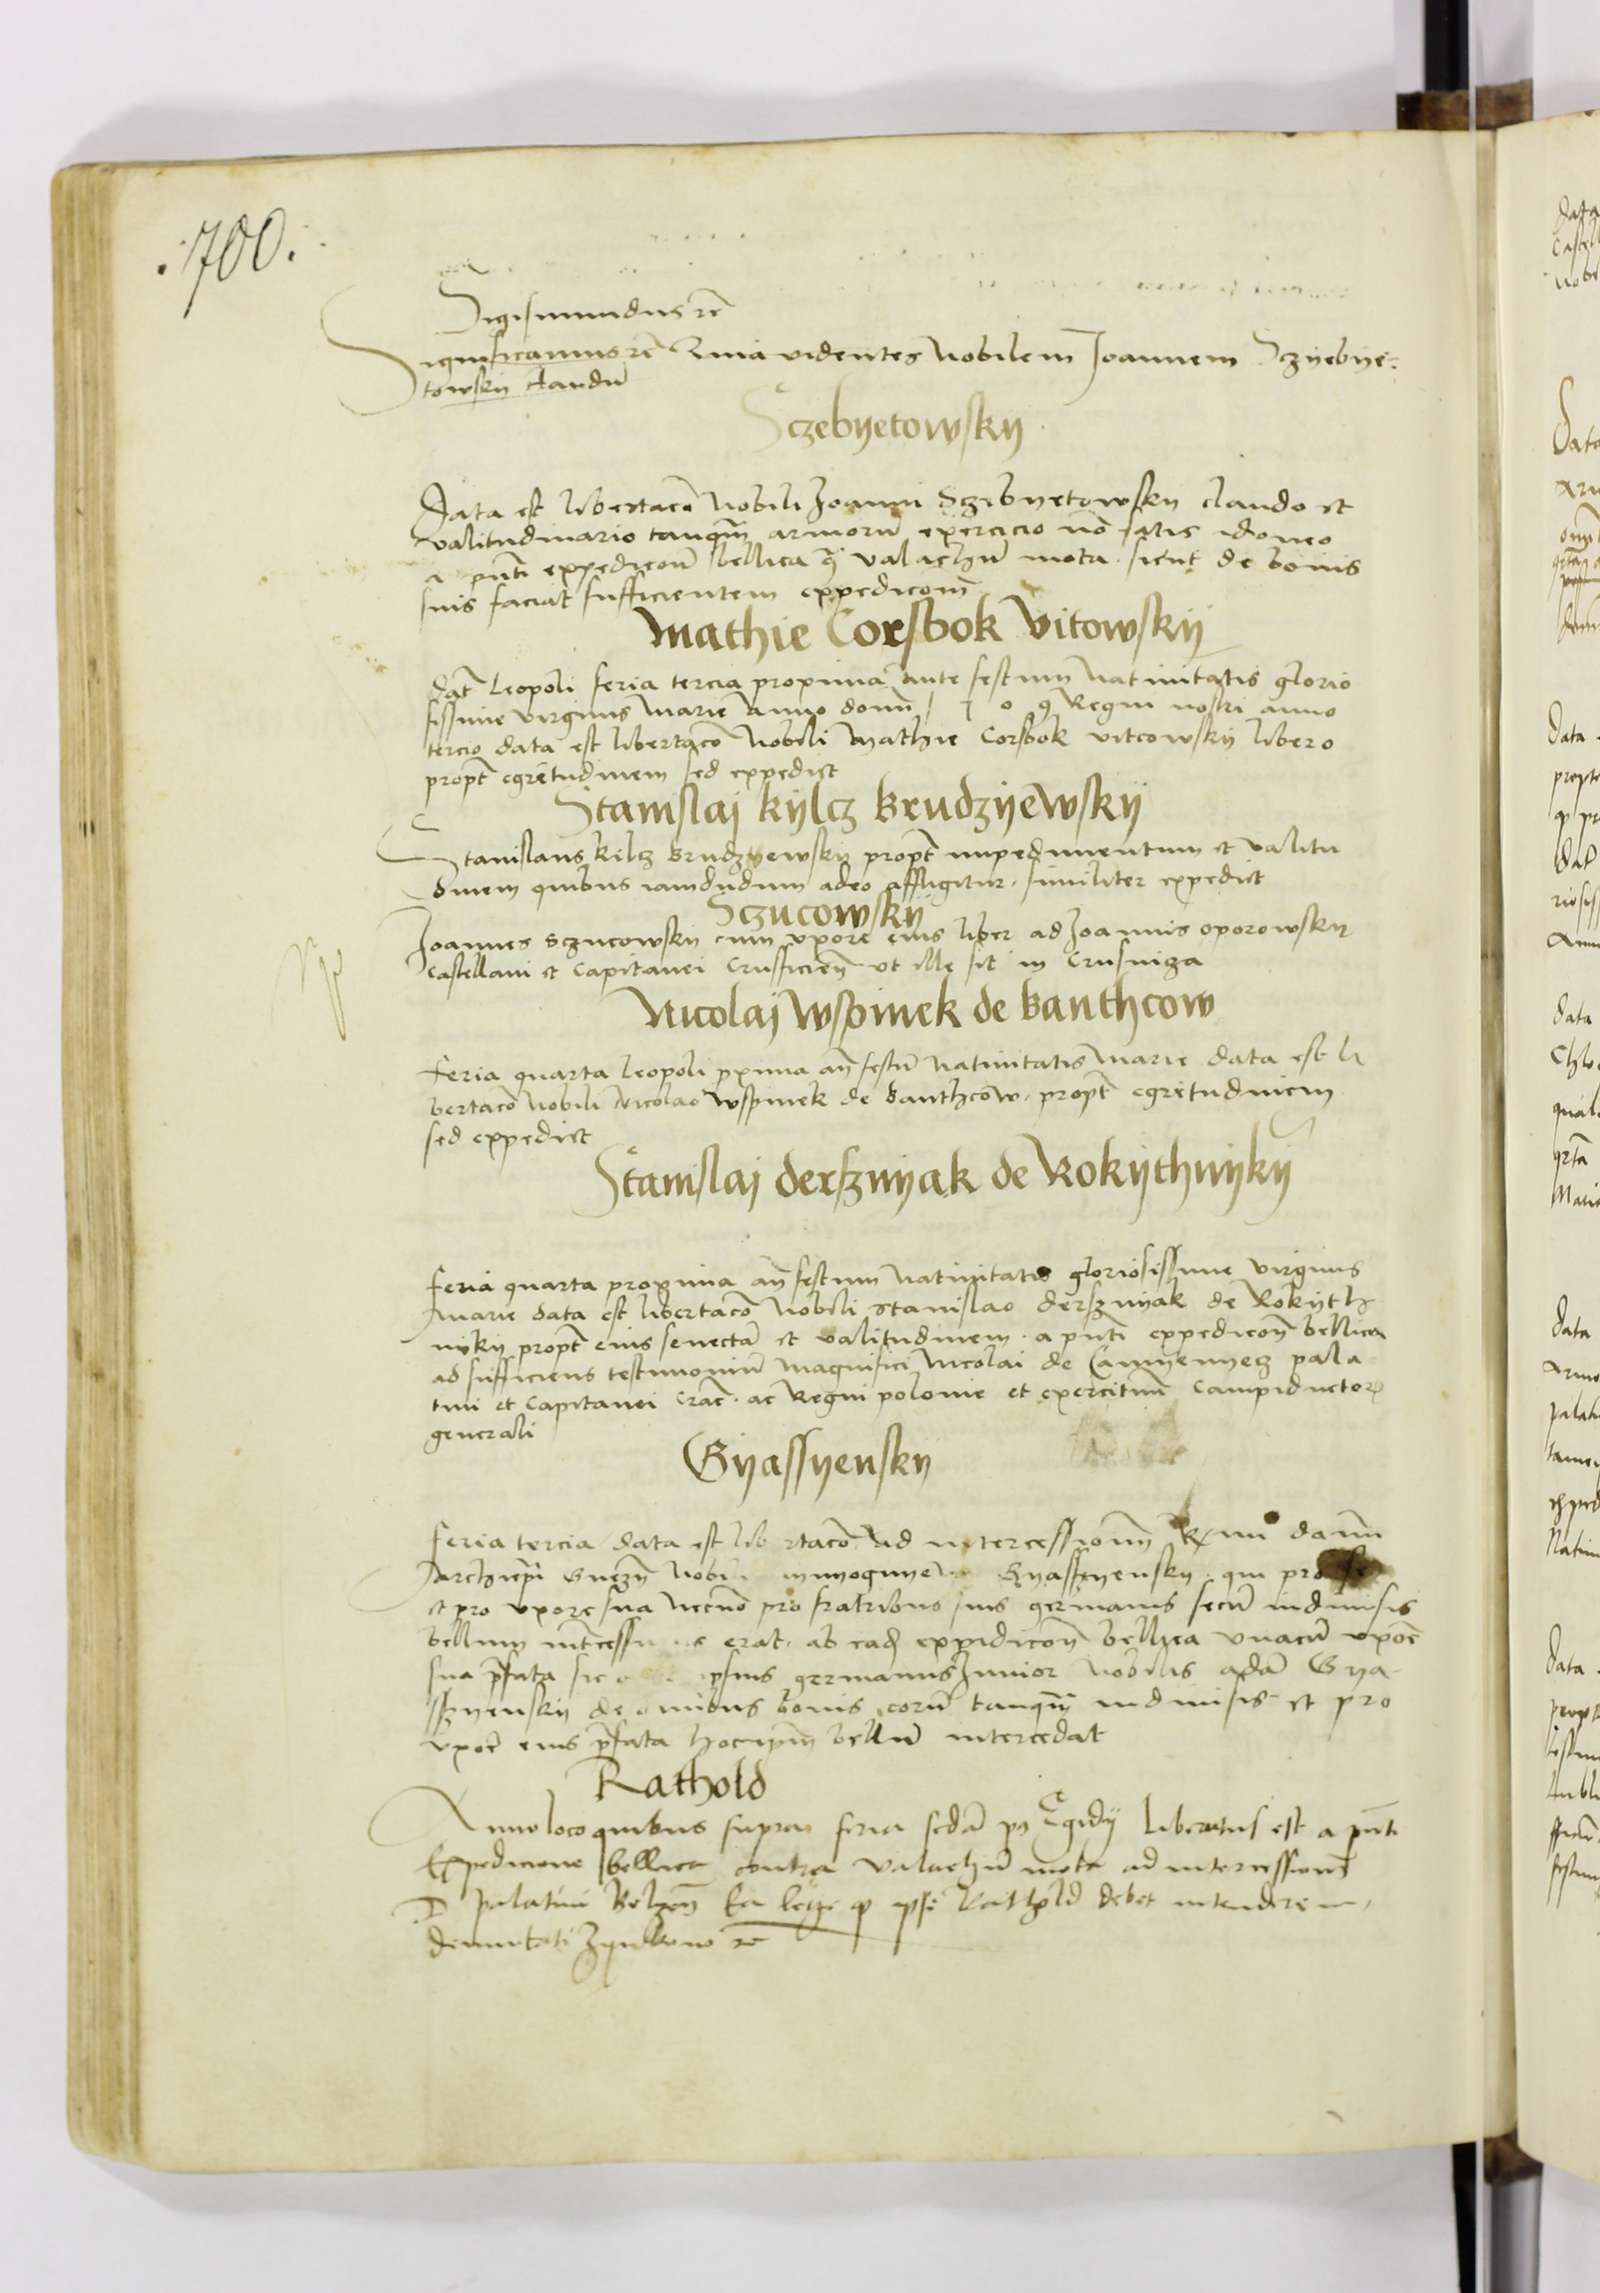 .700.
Sigismundus rc̄
Significamus rc̄ Quia videntes Nobilem Joannem Sczyebye:
towsky claudū
Sczebyetowsky
Data est libertacō Nobili Joanni Sczebyetowsky claudo et
valitudinario tanqm̄ armorū exercicio nō satis idoneo
a pnti expedicōn bellica valachū mota sicut de bonis
suis faciat sufficientem expedicōm
Mathie Corsbok Vitowsky
Dat̄ Leopoli feria tercia proxima ante festum Nativitatis glorio
sissime virginis Marie Anno domī 1 5 0 9 Regni nostri anno
tercio data est libertacō Nobili Mathie Corsbok vitcowsky libero
propt̄ egritudinem sed expedict
Stanislaj kylcz Brudzyewsky
Stanislaus kilcz Brudzyewsky propt̄ impedimentum et valitu
dinem quibus iamdudum adeo affligitur. similiter expedict
Sczucowsky
Joannes Sczucowsky cum uxore eius liber ad Joannis oporowsky
castellani et Capitanei Crusficien̄ ut ille sit in Crusviza
Nicolaj Wspinek de Banthcow
Feria quarta leopoli pxima an̄ festū Nativitatis Marie data est li
bertacō Nobili Nicolao Wspinek de Banthcow. propt̄ egritudinem
sed expedict
Stanislaj dersznyak de Rokythnyky
Feria quarta proxima an̄ festum Nativitatis gloriosissime virginis
Marie data est libertacō Nobili Stanislao dersznyak de Rokyth
nyky propt̄ eius senectā et valitudinem. a pn̄ti expedicōn bellica
ad sufficiens testimoniū Magnifici Nicolai de Camyenyecz pala
tini et Capitanei Crac̄. ac Regni polonie et exercituū Campiductor
generali
Gyassyensky
Feria tercia data est lib rtacō ad intercessionm̄ dōni
Archiepi Gnezn̄ Nobi Gyassyensky. qui pro se
et pro uxore sua necnō pro fratribus suis germanis secū indivisis
bellum erat. ab eadē expedicōn bellica unacū uxore
sua p̄fata sic ipsius germanus Junior Nobilis adā Gya-
szyensky de omibus bonis eorū tanqm̄ indivisis et pro
uxore eius p̄fata bellū intercedat
Rathold
Anno loco quibus supra feria secdā Egidy Liberatus est a pn̄ti
Expedicione bellica contra valachū mota ad intercessionē
D palatini Belzen̄ Ea lege q ipse Rathold debet intendere